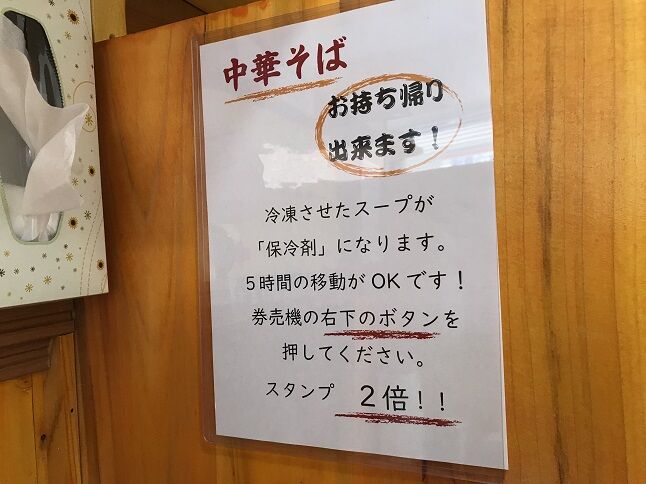 中華そば
お持ち帰り
出来ます！
冷凍させたスープが
「保冷剤」になります。
５時間の移動がOKです！
券売機の右下のボタンを
押してください。
スタンプ　２倍！！